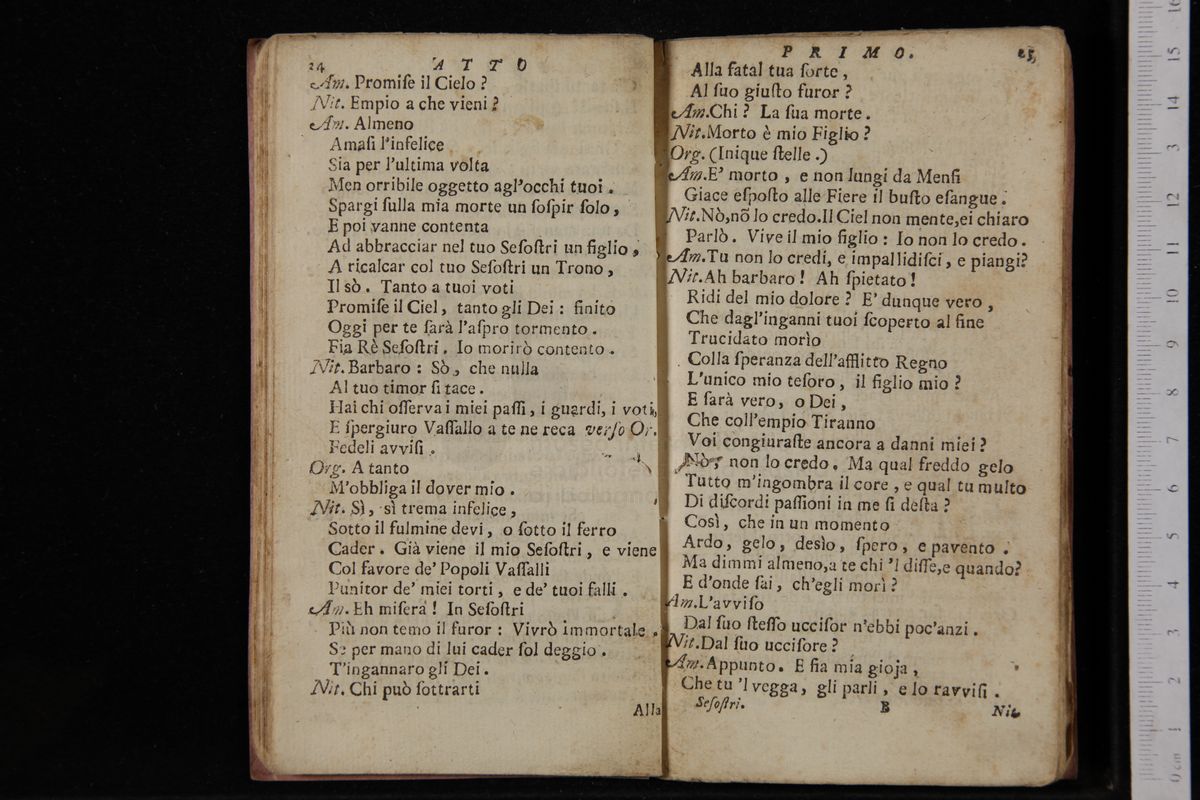 24 ATTO
Am. Promiſe il Cielo ?
Nit. Empio a che vieni ?
Am. Almeno
Amaſi l'infelice
Sia per l'ultima volta
Men orribile oggetto agl'occhi tuoi .
Spargi ſulla mia morte un ſoſpir ſolo ,
E poi vanne contenta
Ad abbracciar nel tuo Seſoſtri un figlio ,
A ricalcar col tuo Seſoſtri un Trono ,
Il sò . Tanto a tuoi voti
Promiſe il Ciel , tanto gli Dei : finito
Oggi per te ſarà l'aſpro tormento .
Fia Rè Seſoſtri . Io morirò contento .
Nit. Barbaro : Sò , che nulla
Al tuo timor ſi tace .
Hai chi oſſerva i miei paſſi , i guardi, i voti,
E ſpergiuro Vaſſallo a te ne reca verſo Or.
Fedeli avviſi .
Org. A tanto
M'obbliga il dover mio .
Nit. Sì , sì trema infelice ,
Sotto il fulmine devi , o ſotto il ferro
Cader . Già viene il mio Seſoſtri , e viene
Col favore de' Popoli Vaſſalli
Punitor de' miei torti , e de' tuoi falli .
Am. Eh miſera ! In Seſoſtri
Più non temo il furor : Vivrò immortale .
Se per mano di lui cader ſol deggio .
T'ingannaro gli Dei .
Nit. Chi può ſottrarti
Alla
PRIMO. 25
Alla fatal tua ſorte ,
Al ſuo giuſto furor ?
Am.Chi ? La ſua morte .
Nit.Morto è mio Figlio ?
Org. (Inique ſtelle .)
Am.E' morto , e non lungi da Menfi
Giace eſpoſto alle Fiere il buſto eſangue .
Nit.Nò,nõ lo credo.Il Ciel non mente,ei chiaro
Parlò . Vive il mio figlio : Io non lo credo .
Am.Tu non lo credi, e impallidiſci , e piangi?
Nit.Ah barbaro ! Ah ſpietato !
Ridi del mio dolore ? E' dunque vero ,
Che dagl'inganni tuoi ſcoperto al fine
Trucidato morìo
Colla ſperanza dell'afflitto Regno
L'unico mio teſoro , il figlio mio ?
E ſarà vero, o Dei ,
Che coll'empio Tiranno
Voi congiuraſte ancora a danni miei ?
Nò , non lo credo . Ma qual freddo gelo
Tutto m'ingombra il core , e qual tumulto
Di diſcordi paſſioni in me ſi deſta ?
Così , che in un momento
Ardo , gelo , desìo , ſpero , e pavento .
Ma dimmi almeno,a te chi 'l diſſe,e quando?
E d'onde ſai , ch'egli morì ?
Am.L'avviſo
Dal ſuo ſteſſo uccifor n'ebbi poc'anzi .
Nit.Dal ſuo ucciſore ?
Am.Appunto. E fia mia gioja ,
Che tu 'l vegga , gli parli , e lo ravviſi .
Seſoſtri. B Nit.